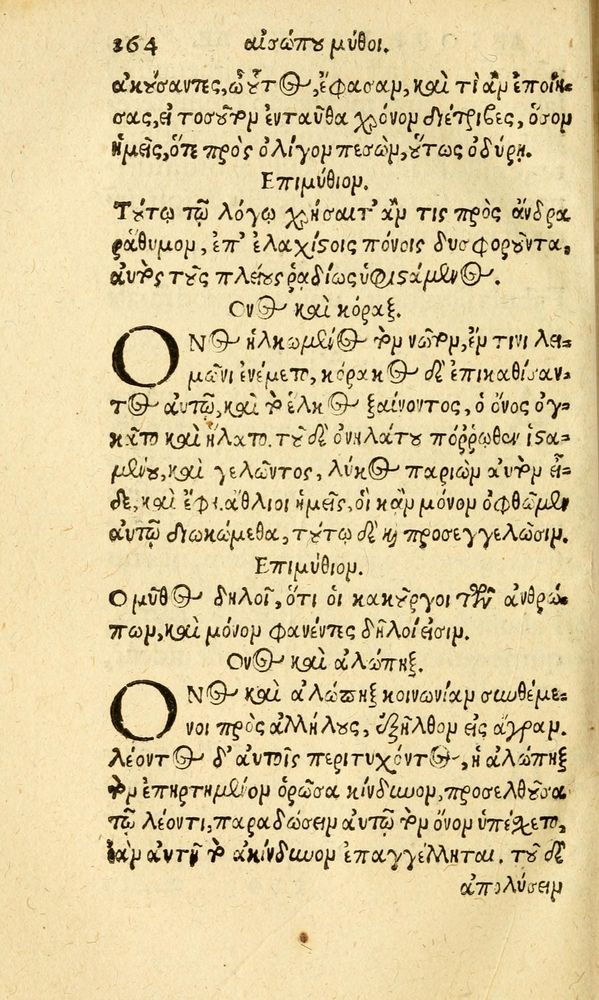 264 αἰσώπου μῦθοι.
ἀκούσαντες, ὦ οὗτος, ἔφασαν, καὶ τί ἂν ἐποίη-
σας, εἰ τοσοῦτον ἐνταῦθα χρόνον διέτριβες, ὅσον
ἡμεῖς, ὅτε πρὸς ὀλίγον πεσὼν, οὕτως ὀδύρῃ.
Επιμύθιον.
Τούτῳ τῷ λόγῳ χρήσαιτ' ἄν τις πρὸς ἄνδρα
ῥάθυμον, ἐπ' ἐλαχίστοις πόνοις δυσφοροῦντα,
αὐτὸς τοὺς πλείους ῥαδίως ὑφιστάμενος.
Ονος καὶ κόραξ.
ΟΝος ἡλκωμένος τὸν νῶτον, ἔν τινι λει-
μῶνι ἐνέμετο, κόρακος δὲ ἐπικαθίσαν-
τος αὐτῷ, καὶ τὸ ἕλκος ξαίνοντος, ὁ ὄνος ὀγ-
κᾶτο καὶ ἥλατο. τοῦ δὲ ὀνηλάτου πόῤῥωθεν ἱστα-
μένου, καὶ γελῶντος, λύκος παριὼν αὐτὸν εἶ-
δε, καὶ ἔφη. ἄθλιοι ἡμεῖς, οἳ κἂν μόνον ὀφθῶμεν
αὐτῷ διωκώμεθα, τούτῳ δὲ καὶ προσεγγελῶσιν.
Επιμύθιον.
Ο μῦθος δηλοῖ, ὅτι οἱ κακοῦργοι τῶν ἀνθρώ-
πων, καὶ μόνον φανέντες δῆλοί εἰσιν.
Ονος καὶ ἀλώπηξ.
ΟΝος καὶ ἀλώπηξ κοινωνίαν συνθέμε-
νοι πρὸς ἀλλήλους, ἐξῆλθον εἰς ἄγραν.
λέοντος δ' αὐτοῖς περιτυχόντος, ἡ ἀλώπηξ
τὸν ἐπηρτημένον ὁρῶσα κίνδυνον, προσελθοῦσα
τῷ λέοντι, παραδώσειν αὐτῷ τὸν ὄνον ὑπέσχετο,
ἐὰν αὐτῇ τὸ ἀκίνδυνον ἐπαγγέλληται. τοῦ δὲ
ἀπολύσειν